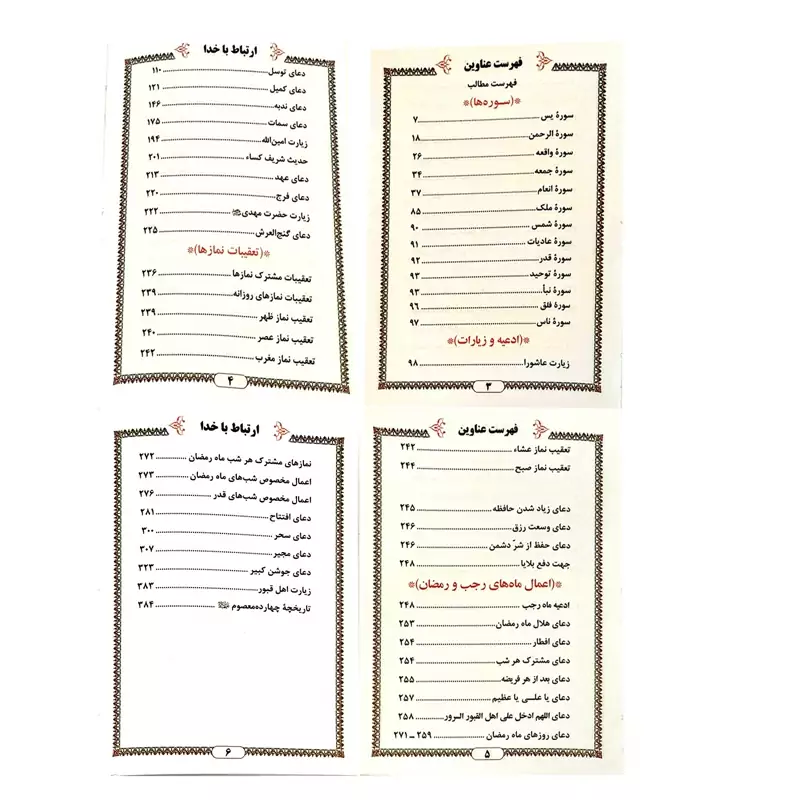 فهرست عناوین
فهرست مطالب
*(سوره‌ها)*
سورهٔ یس ..... ۷
سورهٔ الرحمن ..... ۱۸
سورهٔ واقعه ..... ۲۶
سورهٔ جمعه ..... ۳۴
سورهٔ انعام ..... ۳۷
سورهٔ ملک ..... ۸۵
سورهٔ شمس ..... ۹۰
سورهٔ عادیات ..... ۹۱
سورهٔ قدر ..... ۹۲
سورهٔ توحید ..... ۹۳
سورهٔ نبأ ..... ۹۳
سورهٔ فلق ..... ۹۶
سورهٔ ناس ..... ۹۷
*(ادعیه و زیارات)*
زیارت عاشورا ..... ۹۸
۳
ارتباط با خدا
دعای توسل ..... ۱۱۰
دعای کمیل ..... ۱۲۱
دعای ندبه ..... ۱۴۶
دعای سمات ..... ۱۷۵
زیارت امین‌الله ..... ۱۹۴
حدیث شریف کساء ..... ۲۰۱
دعای عهد ..... ۲۱۳
دعای فرج ..... ۲۲۰
زیارت حضرت مهدی ..... ۲۲۲
دعای گنج‌العرش ..... ۲۲۵
*(تعقیبات نمازها)*
تعقیبات مشترک نمازها ..... ۲۳۶
تعقیبات نمازهای روزانه ..... ۲۳۹
تعقیب نماز ظهر ..... ۲۳۹
تعقیب نماز عصر ..... ۲۴۰
تعقیب نماز مغرب ..... ۲۴۲
۴
فهرست عناوین
تعقیب نماز عشاء ..... ۲۴۲
تعقیب نماز صبح ..... ۲۴۴
دعای زیاد شدن حافظه ..... ۲۴۵
دعای وسعت رزق ..... ۲۴۶
دعای حفظ از شرّ دشمن ..... ۲۴۶
جهت دفع بلایا ..... ۲۴۸
*(اعمال ماه‌های رجب و رمضان)*
ادعیه ماه رجب ..... ۲۴۸
دعای هلال ماه رمضان ..... ۲۵۳
دعای افطار ..... ۲۵۴
دعای مشترک هر شب ..... ۲۵۴
دعای بعد از هر فریضه ..... ۲۵۵
دعای یا علـــی یا عظیم ..... ۲۵۷
دعای اللهم ادخل علی اهل القبور السرور ..... ۲۵۸
دعای روزهای ماه رمضان ..... ۲۵۹ ــ ۲۷۱
۵
ارتباط با خدا
نمازهای مشترک هر شب ماه رمضان ..... ۲۷۲
اعمال مخصوص شب‌های ماه رمضان ..... ۲۷۳
اعمال مخصوص شب‌های قدر ..... ۲۷۶
دعای افتتاح ..... ۲۸۱
دعای سحر ..... ۳۰۰
دعای مجیر ..... ۳۰۷
دعای جوشن کبیر ..... ۳۲۳
زیارت اهل قبور ..... ۳۸۳
تاریخچهٔ چهارده‌معصوم ..... ۳۸۴
۶